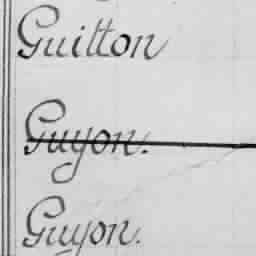 Guitton
Guyon.
Guyon.